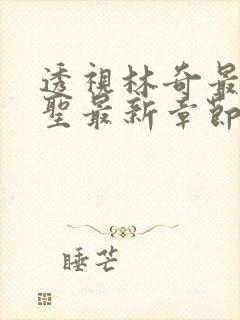 透視林奇最
聖最新章節
睡芒